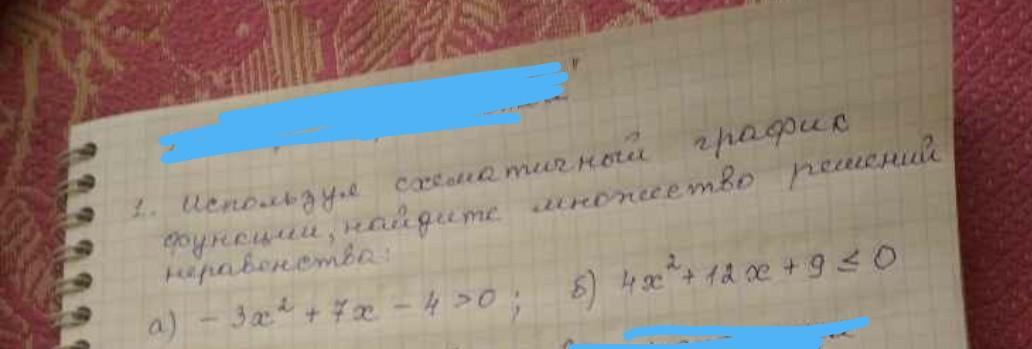 1. Используя схематичный график
функции, найдите множество решений
неравенства:
а) -3x² + 7x - 4 > 0 ; б) 4x² + 12x + 9 ≤ 0